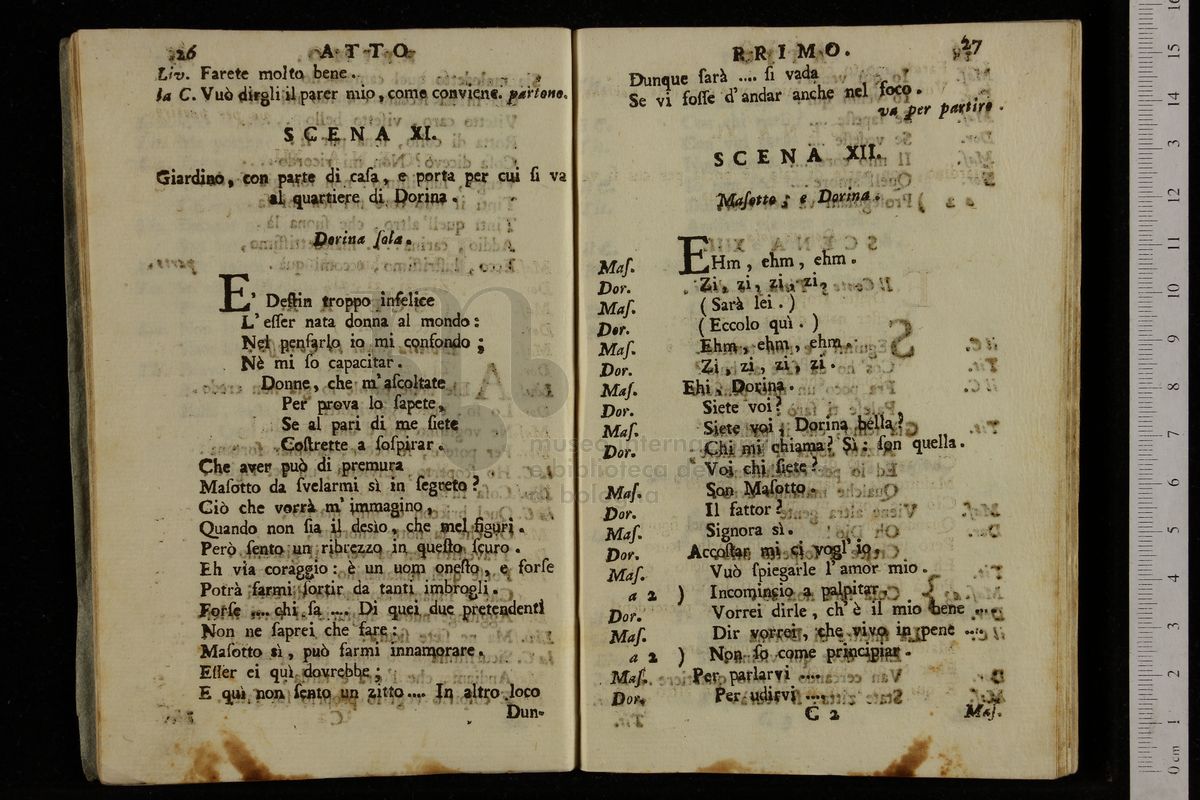 26 ATTO
Liv. Farete molto bene.
la C. Vuò dirgli il parer mio, come conviene. partono.
SCENA XI.
Giardino, con parte di casa, e porta per cui si va
al quartiere di Dorina.
Dorina sola.
E' Destin troppo infelice
L'esser nata donna al mondo:
Nel pensarlo io mi confondo;
Nè mi so capacitar.
Donne, che m'ascoltate
Per prova lo sapete,
Se al pari di me siete
Costrette a sospirar.
Che aver può di premura
Masotto da svelarmi sì in segreto?
Ciò che vorrà m'immagino,
Quando non sia il desio, che mel figuri.
Però sento un ribrezzo in questo scuro.
Eh via coraggio: è un uom onesto, e forse
Potrà farmi sortir da tanti imbrogli.
Forse .... chi sa .... Di quei due pretendenti
Non ne saprei che fare:
Masotto sì, può farmi innamorare.
Esser ei quì dovrebbe;
E quì non sento un zitto.... In altro loco
Dun-
PRIMO. 27
Dunque sarà .... si vada
Se vi fosse d'andar anche nel foco.
va per partire.
SCENA XII.
Masotto; e Dorina.
Mas. EHm, ehm, ehm.
Dor. Zi, zi, zi, zi,
Mas. (Sarà lei.)
Dor. (Eccolo quì.)
Mas. Ehm, ehm, ehm.
Dor. Zi, zi, zi, zi.
Mas. Ehi, Dorina.
Dor. Siete voi?
Mas. Siete voi, Dorina bella?
Dor. Chi mi chiama? Sì: son quella.
Voi chi siete?
Mas. Son Masotto.
Dor. Il fattor?
Mas. Signora sì.
Dor. Accostar mi ci vogl'io,
Mas. Vuò spiegarle l'amor mio.
a 2 ) Incomincio a palpitar.
Dor. Vorrei dirle, ch'è il mio bene ....
Mas. Dir vorrei, che vivo in pene ....
a 2 ) Non so come principiar.
Mas. Per parlarvi ....
Dor. Per udirvi ....
C 2 Mas.
museo internaz
e biblioteca de
di bologna
0 cm 1 2 3 4 5 6 7 8 9 10 11 12 13 14 15 16